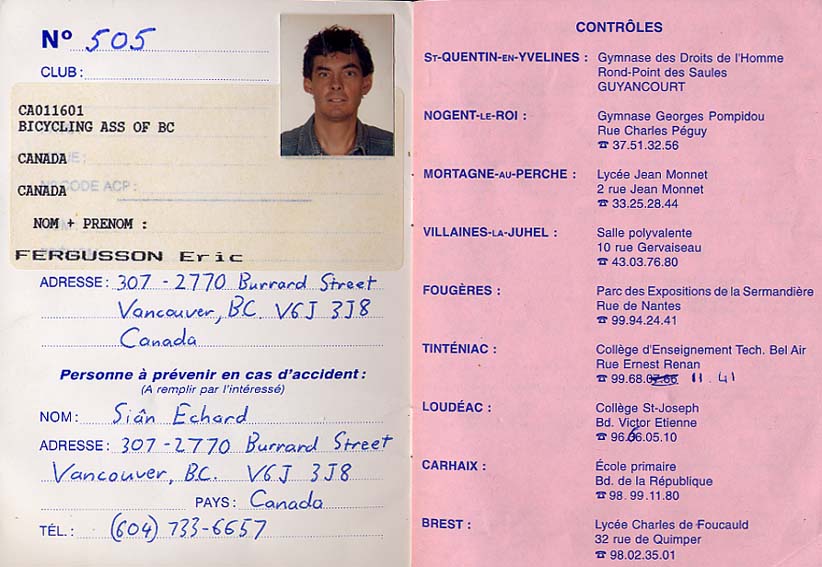 Nº 505
CLUB :
CA011601
BICYCLING ASS OF BC
CANADA
CODE ACP :
CANADA
NOM + PRENOM :
FERGUSSON Eric
ADRESSE : 307 - 2770 Burrard Street
Vancouver, B.C. V6J 3J8
Canada
Personne à prévenir en cas d'accident :
(A remplir par l'intéressé)
NOM : Siân Echard
ADRESSE : 307 - 2770 Burrard Street
Vancouver, B.C. V6J 3J8
PAYS : Canada
TÉL. : (604) 733-6657
CONTRÔLES
ST-QUENTIN-EN-YVELINES : Gymnase des Droits de l'Homme
Rond-Point des Saules
GUYANCOURT
NOGENT-LE-ROI : Gymnase Georges Pompidou
Rue Charles Péguy
☎ 37.51.32.56
MORTAGNE-AU-PERCHE : Lycée Jean Monnet
2 rue Jean Monnet
☎ 33.25.28.44
VILLAINES-LA-JUHEL : Salle polyvalente
10 rue Gervaiseau
☎ 43.03.76.80
FOUGÈRES : Parc des Expositions de la Sermandière
Rue de Nantes
☎ 99.94.24.41
TINTÉNIAC : Collège d'Enseignement Tech. Bel Air
Rue Ernest Renan
☎ 99.68.07.66 11.41
LOUDÉAC : Collège St-Joseph
Bd. Victor Etienne
☎ 96.66.05.10
CARHAIX : École primaire
Bd. de la République
☎ 98.99.11.80
BREST : Lycée Charles de Foucauld
32 rue de Quimper
☎ 98.02.35.01